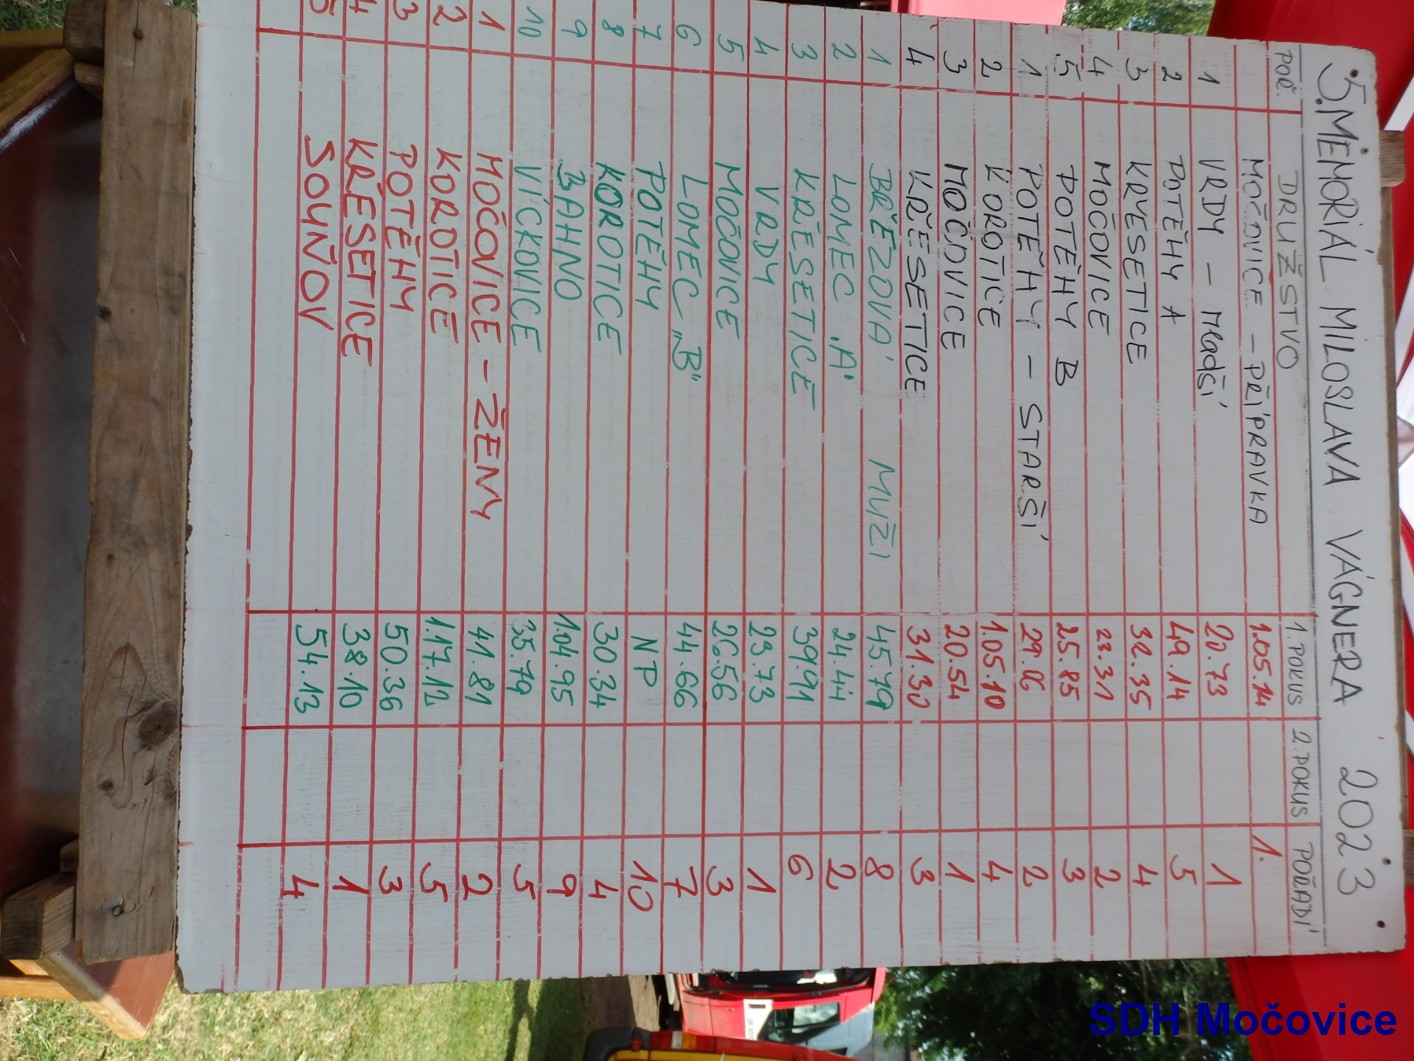 5. MEMORIÁL MILOSLAVA VÁGNERA 2023
POŘ. DRUŽSTVO 1. POKUS 2. POKUS POŘADÍ
MOČOVICE - PŘÍPRAVKA 1.05.14 1.
1 VRDY - Mladší 20.73 1
2 POTĚHY A 49.14 5
3 KŘESETICE 32.35 4
4 MOČOVICE 23.31 2
5 POTĚHY B 25.85 3
1 POTĚHY - STARŠÍ 29.06 2
2 KOROTICE 1.05.10 4
3 MOČOVICE 20.54 1
4 KŘESETICE 31.30 3
1 BŘEZOVÁ MUŽI 45.79 8
2 LOMEC "A" 24.44 2
3 KŘESETICE 39.91 6
4 VRDY 23.73 1
5 MOČOVICE 26.56 3
6 LOMEC "B" 44.66 7
7 POTĚHY NP 10
8 KOROTICE 30.34 4
9 BAHNO 1.04.95 9
10 VÍCKOVICE 35.79 5
1 MOČOVICE - ŽENY 41.81 2
2 KOROTICE 1.17.12 5
3 POTĚHY 50.36 3
4 KŘESETICE 38.10 1
5 SOUŇOV 54.13 4
SDH Močovice